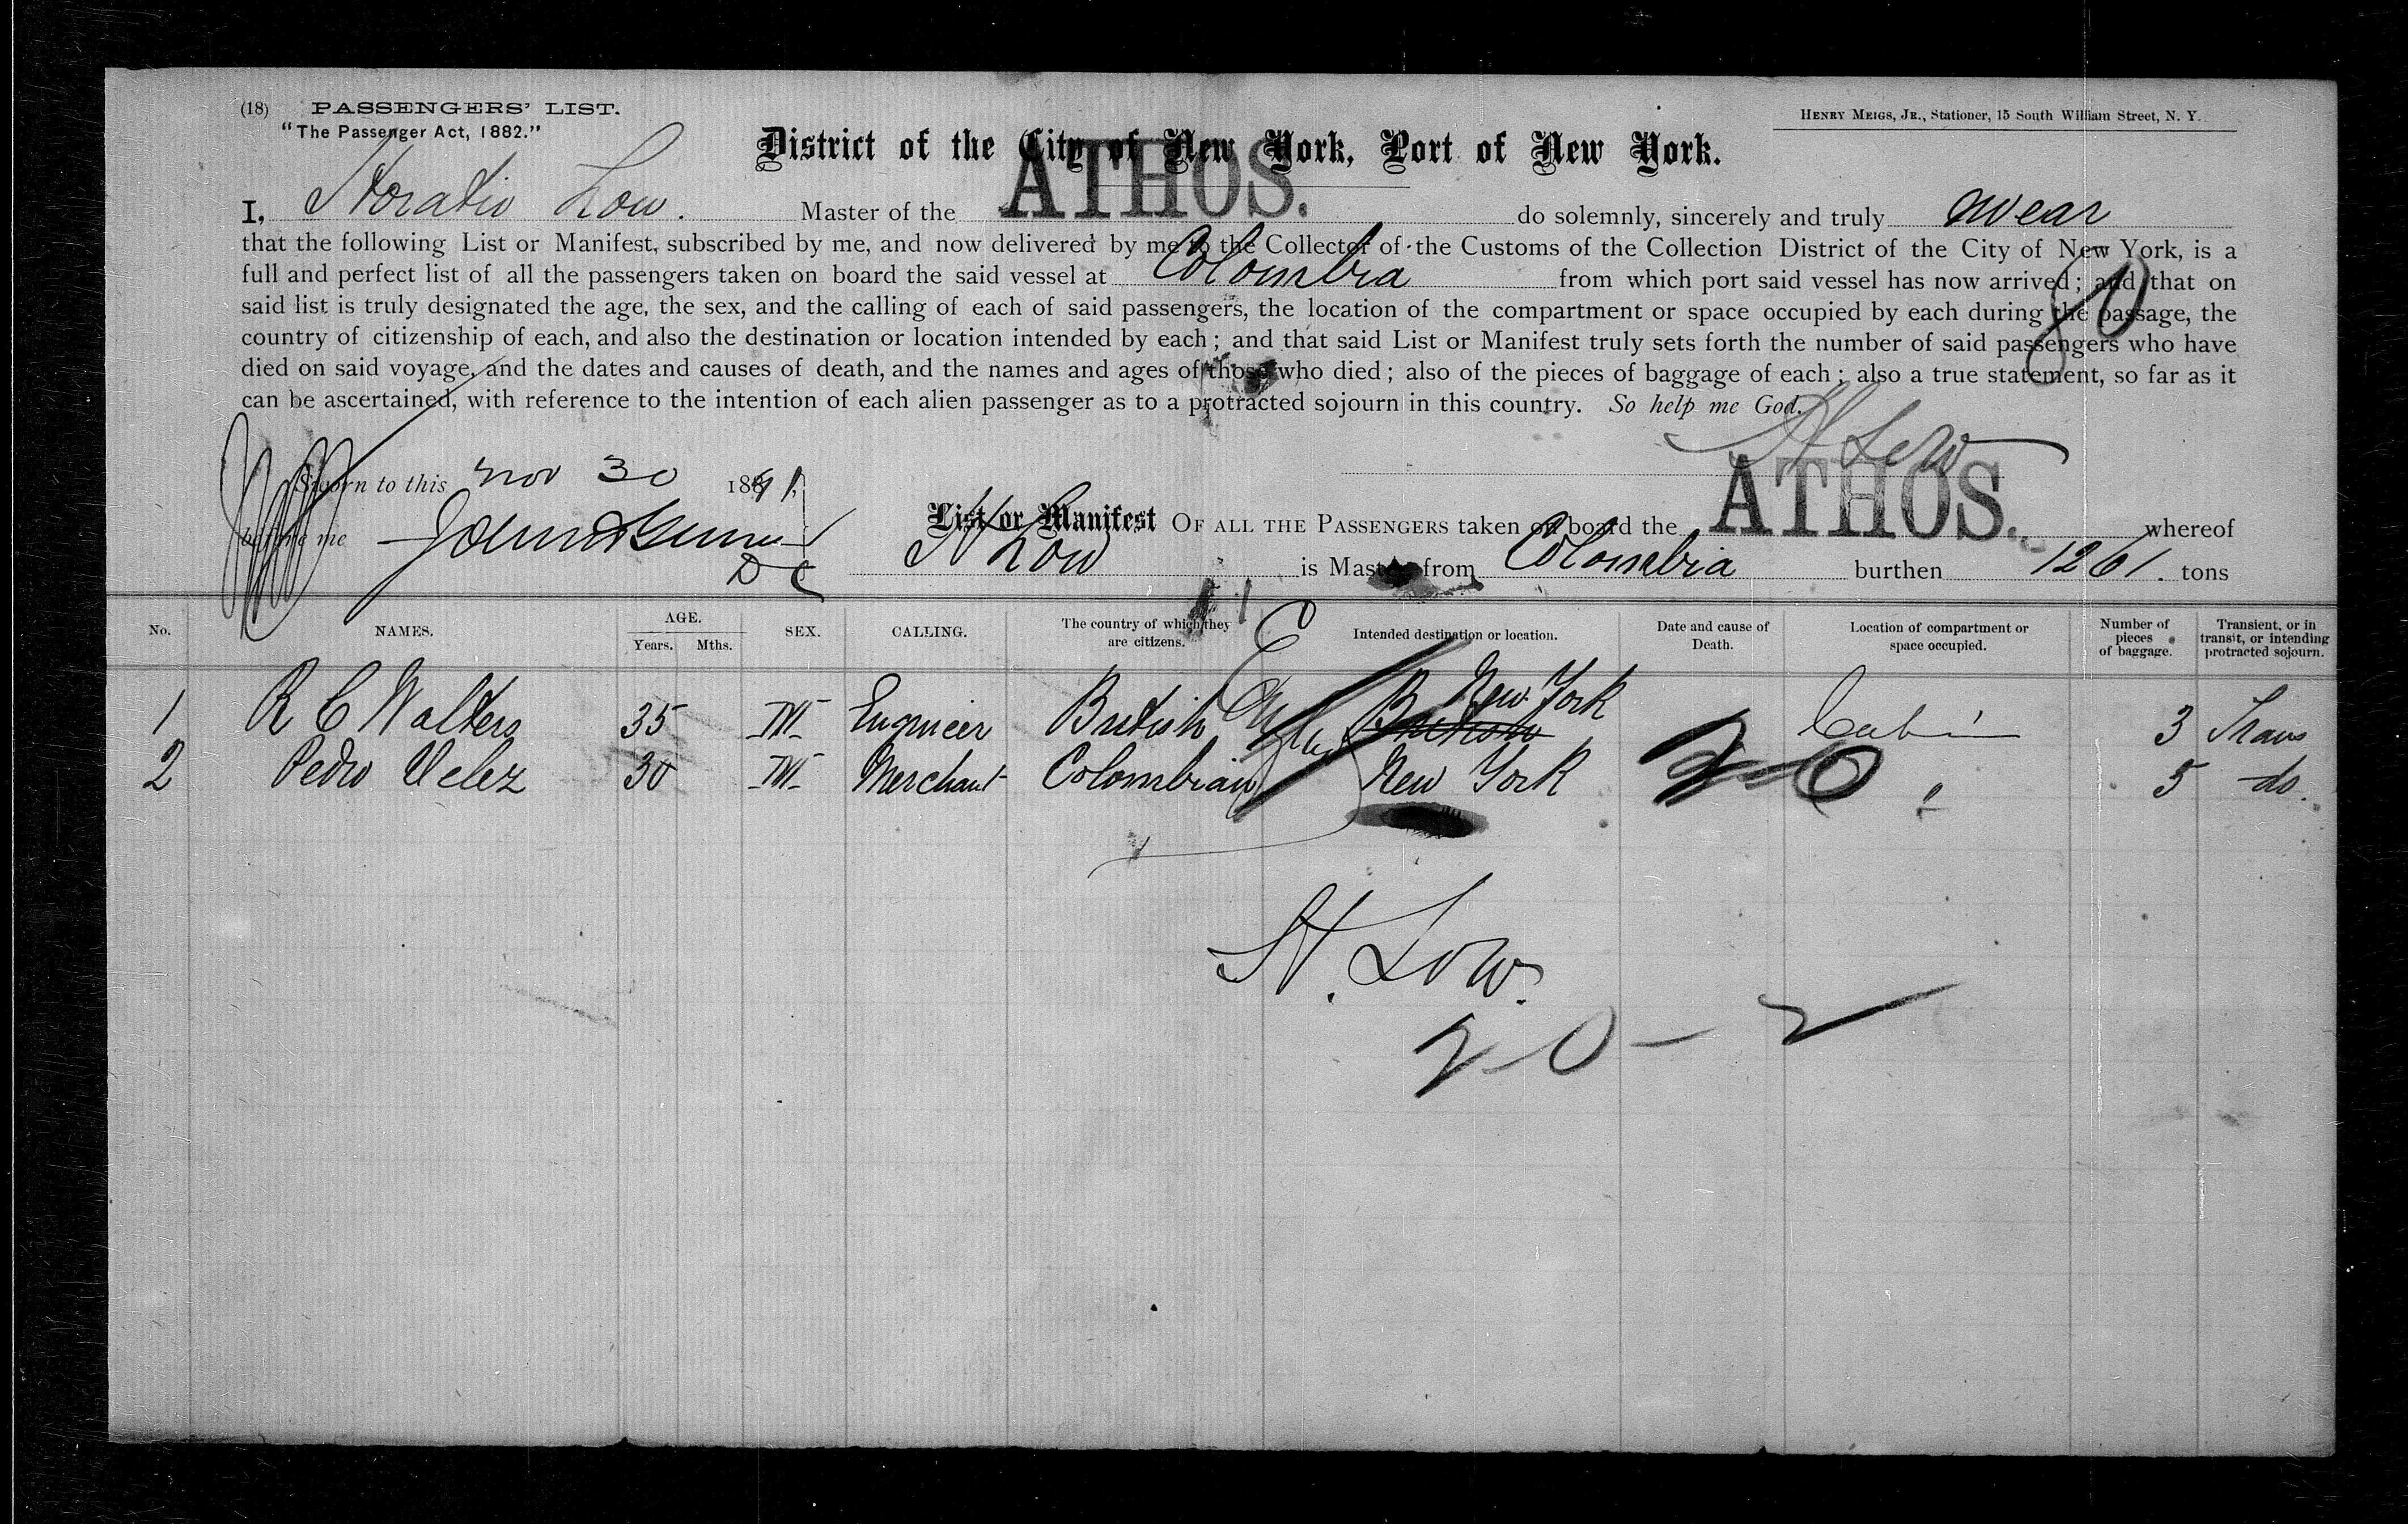 (18) PASSENGERS' LIST.
"The Passenger Act, 1882."
HENRY MEIGS, JR., Stationer, 15 South William Street, N. Y.
District of the City of New York, Port of New York.
I, Horatio Low. Master of the ATHOS. do solemnly, sincerely and truly swear
that the following List or Manifest, subscribed by me, and now delivered by me to the Collector of the Customs of the Collection District of the City of New York, is a
full and perfect list of all the passengers taken on board the said vessel at Colombia from which port said vessel has now arrived; and that on
said list is truly designated the age, the sex, and the calling of each of said passengers, the location of the compartment or space occupied by each during the passage, the
country of citizenship of each, and also the destination or location intended by each; and that said List or Manifest truly sets forth the number of said passengers who have
died on said voyage, and the dates and causes of death, and the names and ages of those who died; also of the pieces of baggage of each; also a true statement, so far as it
can be ascertained, with reference to the intention of each alien passenger as to a protracted sojourn in this country. So help me God.
H Low
Sworn to this Nov 30 1891,
before me
D C
List or Manifest OF ALL THE PASSENGERS taken on board the ATHOS. whereof
H Low is Master from Colombia burthen 1261. tons
No. NAMES. AGE. Years. Mths. SEX. CALLING. The country of which they are citizens. Intended destination or location. Date and cause of Death. Location of compartment or space occupied. Number of pieces of baggage. Transient, or in transit, or intending protracted sojourn.
1 R C Walters 35 M Engineer British New York Cabin 3 Trans
2 Pedro Velez 30 M Merchant Colombian New York " 5 do.
H. Low.
20 - 2